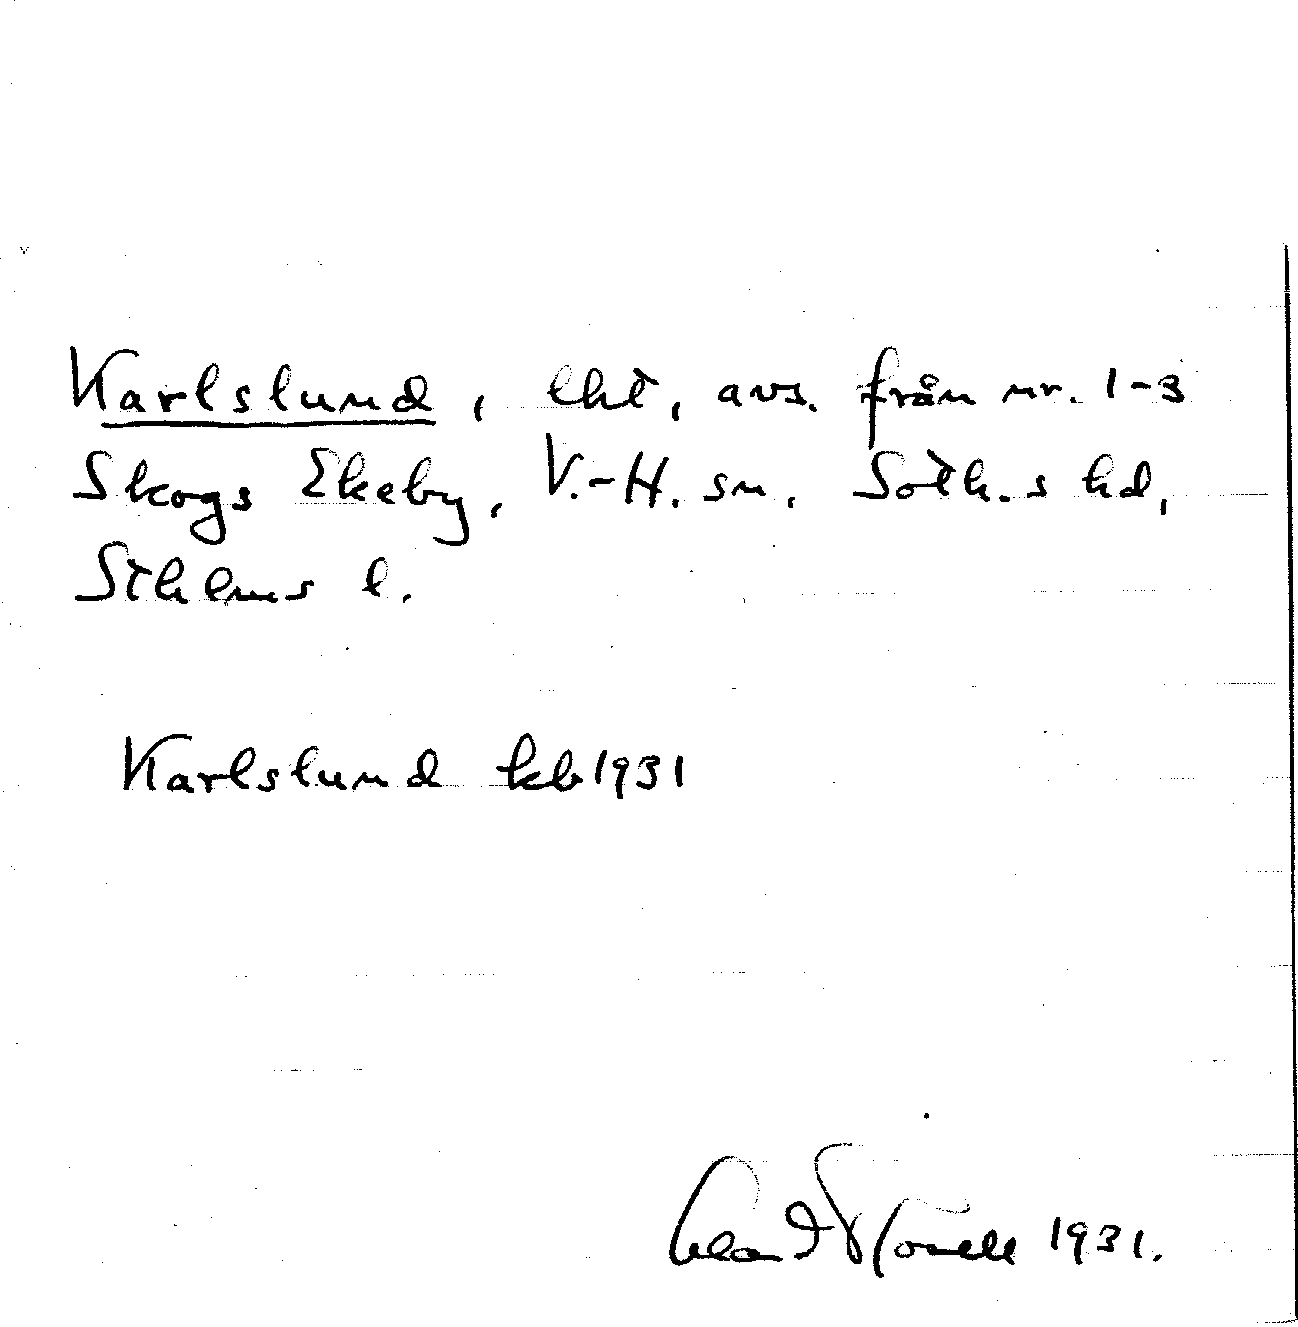 Karlslund, lht, avs. från nr. 1-3
Skogs Ekeby, V.-H. sn. Soth.s hd,
Sthlms l.
Karlslund kb 1931
1931.